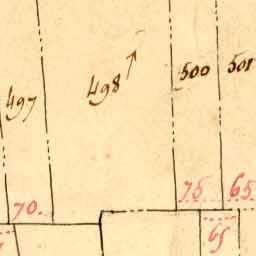 497
498
500
501
70
75
65
65